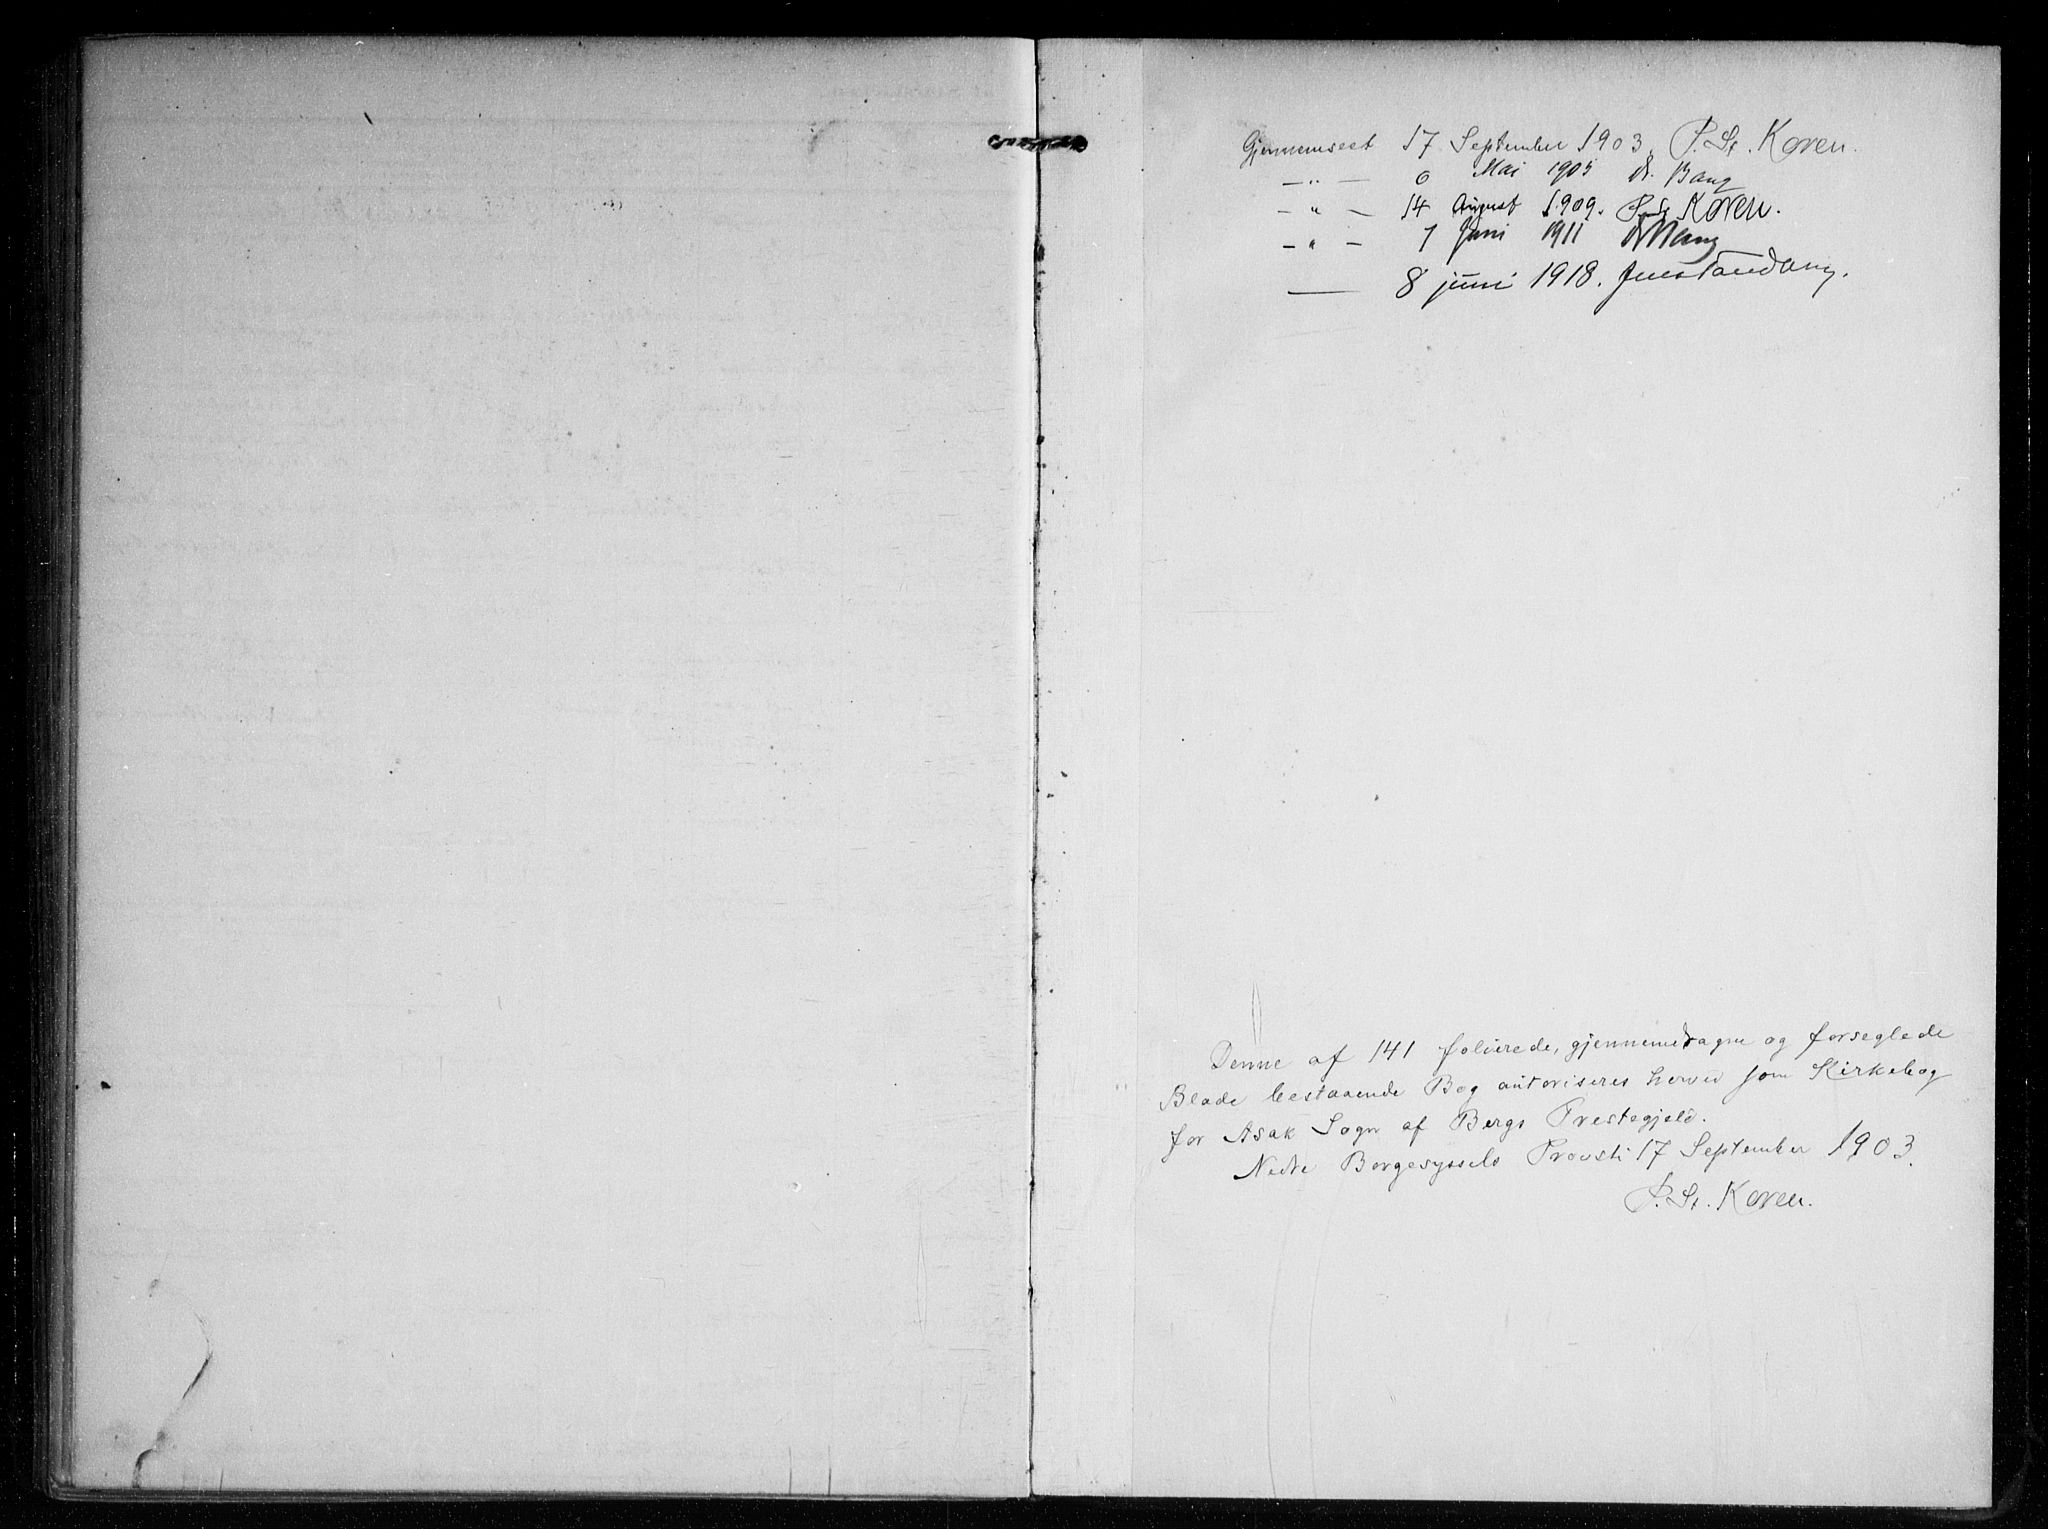 Gjennemseet 17 September 1903. P. St. Koren.
— " — 6 Mai 1905 Bang
— " — 14 August 1909. P. St. Koren.
— " — 7 Juni 1911 Bang
— 8 juni 1918.
Denne af 141 folierede, gjennemdragne og forseglede
Blade bestaaende Bog autoriseres herved som Kirkebog
for Asak Sogn af Bergs Prestegjeld.
Nedre Borgesyssels Provsti 17 September 1903.
P. St. Koren.